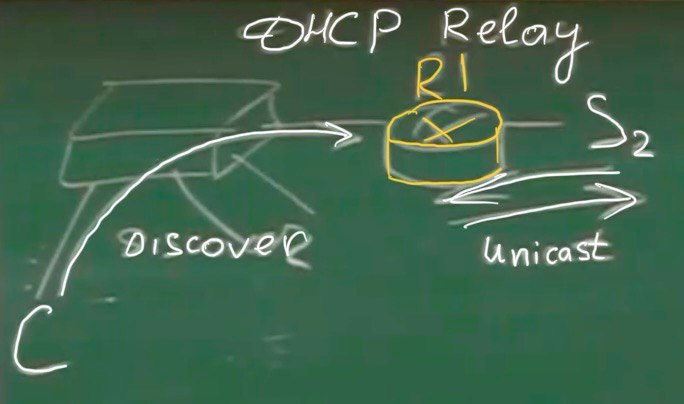 DHCP Relay
R1
S2
DISCOVER
Unicast
C